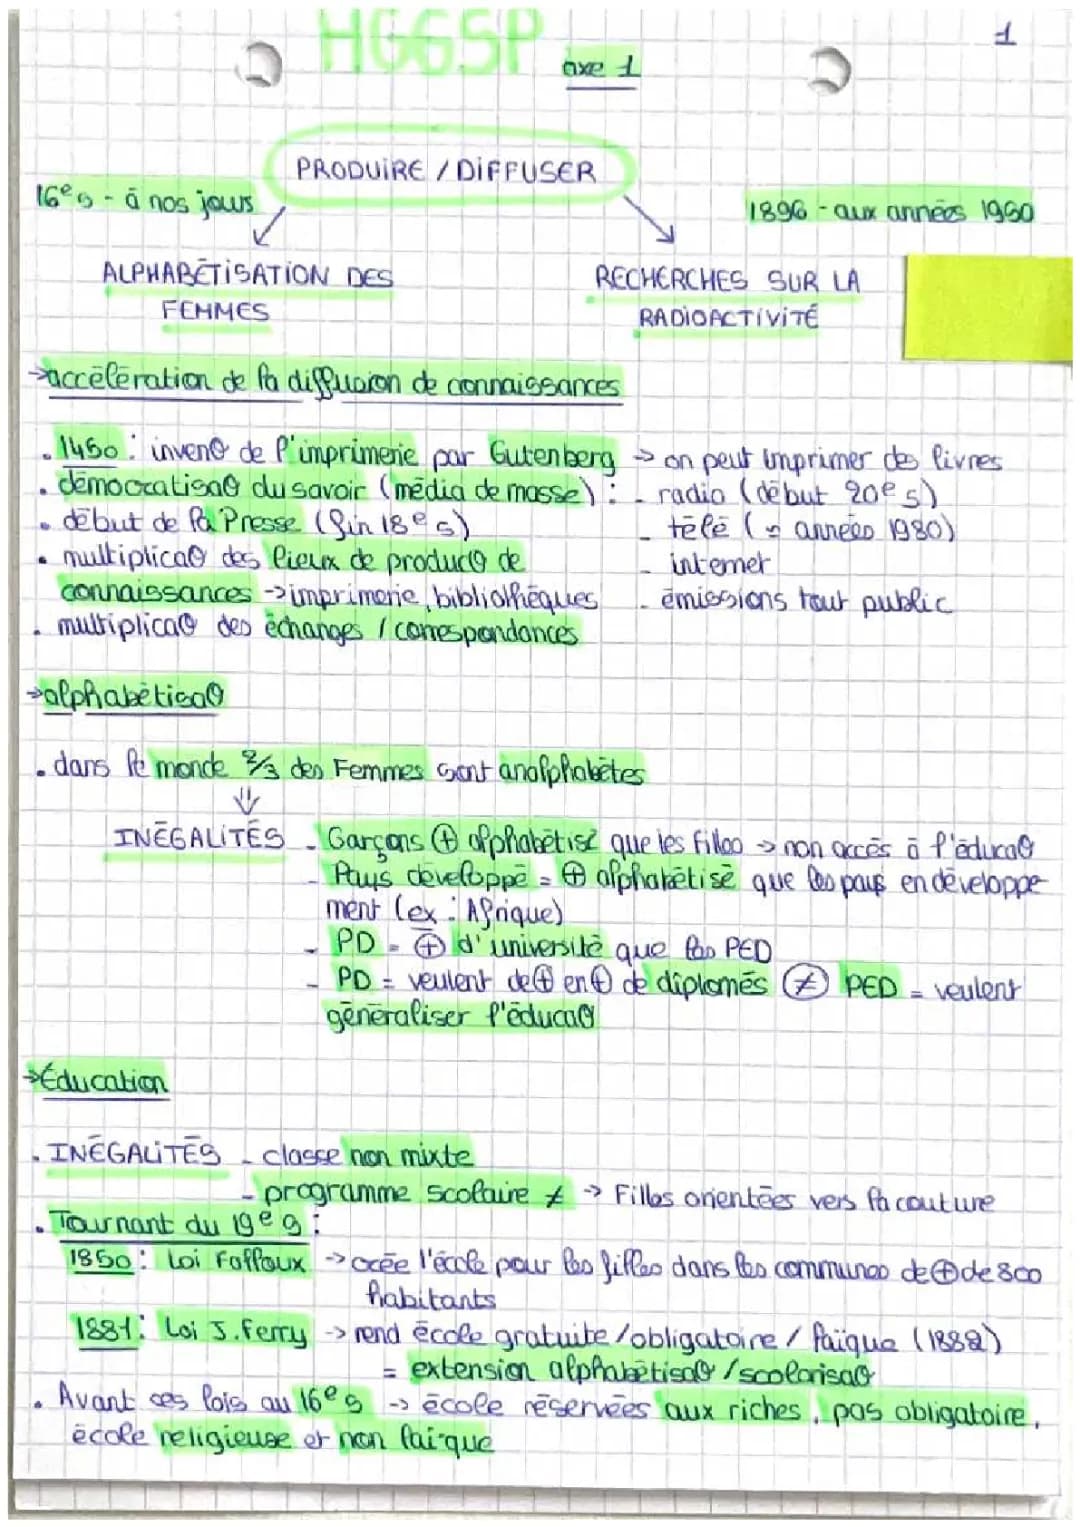 HGGSP
1
axe 1
PRODUIRE / DIFFUSER
16e s - à nos jours
1896 - aux années 1960
ALPHABÉTISATION DES
FEMMES
RECHERCHES SUR LA
RADIOACTIVITÉ
→accélération de la diffusion de connaissances
. 1450 : invenØ de l'imprimerie par Gutenberg → on peut imprimer des livres
. démocratisaØ du savoir (média de masse) : - radio (début 20e s)
. début de la Presse (fin 18e s)
- télé (≃ années 1980)
. multiplicaØ des lieux de producØ de
- internet
connaissances →imprimerie, bibliothèques
- émissions tout public
. multiplicaØ des échanges / correspondances
→alphabétisaØ
. dans le monde 2/3 des Femmes sont analphabètes
⇓
INÉGALITÉS - Garçons ⊕ alphabétisé que les filles → non accès à l'éducaØ
- Pays développé = ⊕ alphabétisé que les pays en développe
ment (ex : Afrique)
- PD = ⊕ d'université que les PED
- PD = veulent de⊕ en⊕ de diplômés ≠ PED = veulent
généraliser l'éducaØ
→Éducation
. INÉGALITÉS - classe non mixte
- programme scolaire ≠ → Filles orientées vers la couture
. Tournant du 19e s :
1850 : Loi Falloux → crée l'école pour les filles dans les communes de⊕de 800
habitants
1881 : Loi J. Ferry → rend école gratuite / obligatoire / laïque (1882)
= extension alphabétisaØ / scolarisaØ
. Avant ces lois au 16e s → école réservées aux riches, pas obligatoire,
école religieuse et non laïque